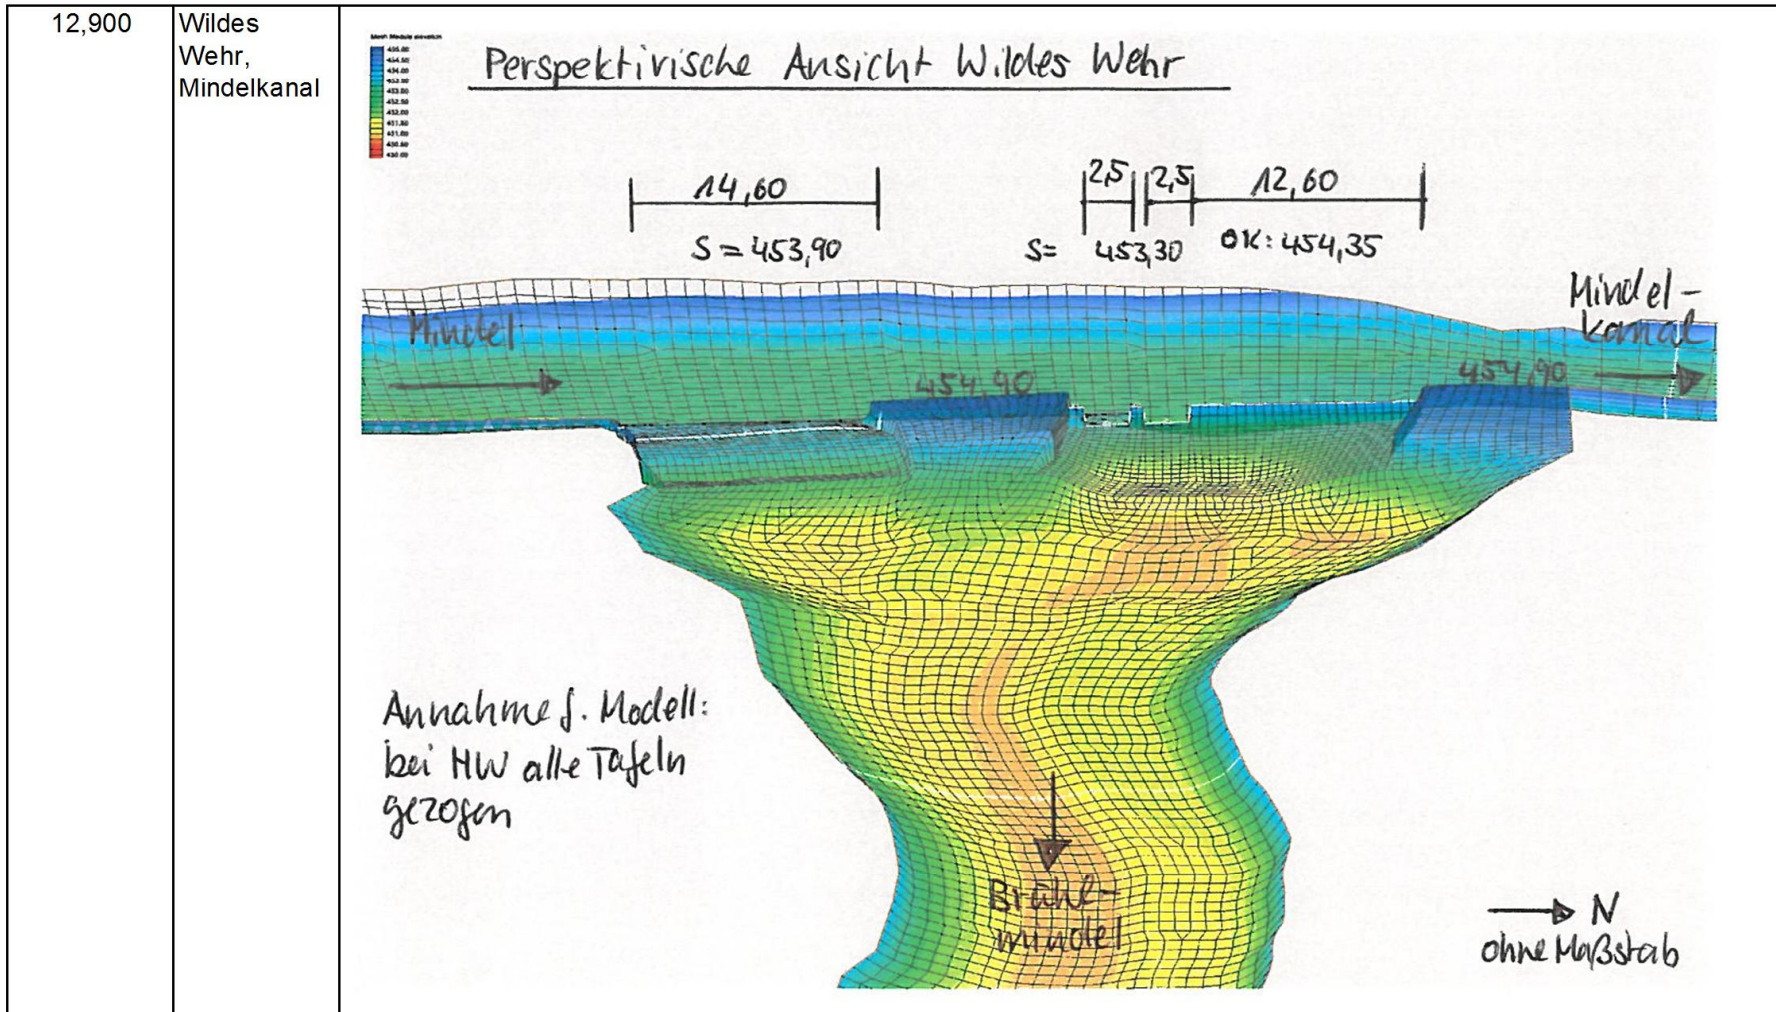 12,900
Wildes
Wehr,
Mindelkanal
Mesh Module elevation
455.00
454.50
454.00
453.50
453.00
452.50
452.00
451.50
451.00
450.50
450.00
Perspektivische Ansicht Wildes Wehr
14,60
2,5
2,5
12,60
S = 453,90
S= 453,30
OK: 454,35
Mindel
Mindel-
kanal
454,90
454,90
Annahme f. Modell:
bei HW alle Tafeln
gezogen
Brühl-
mindel
N
ohne Maßstab